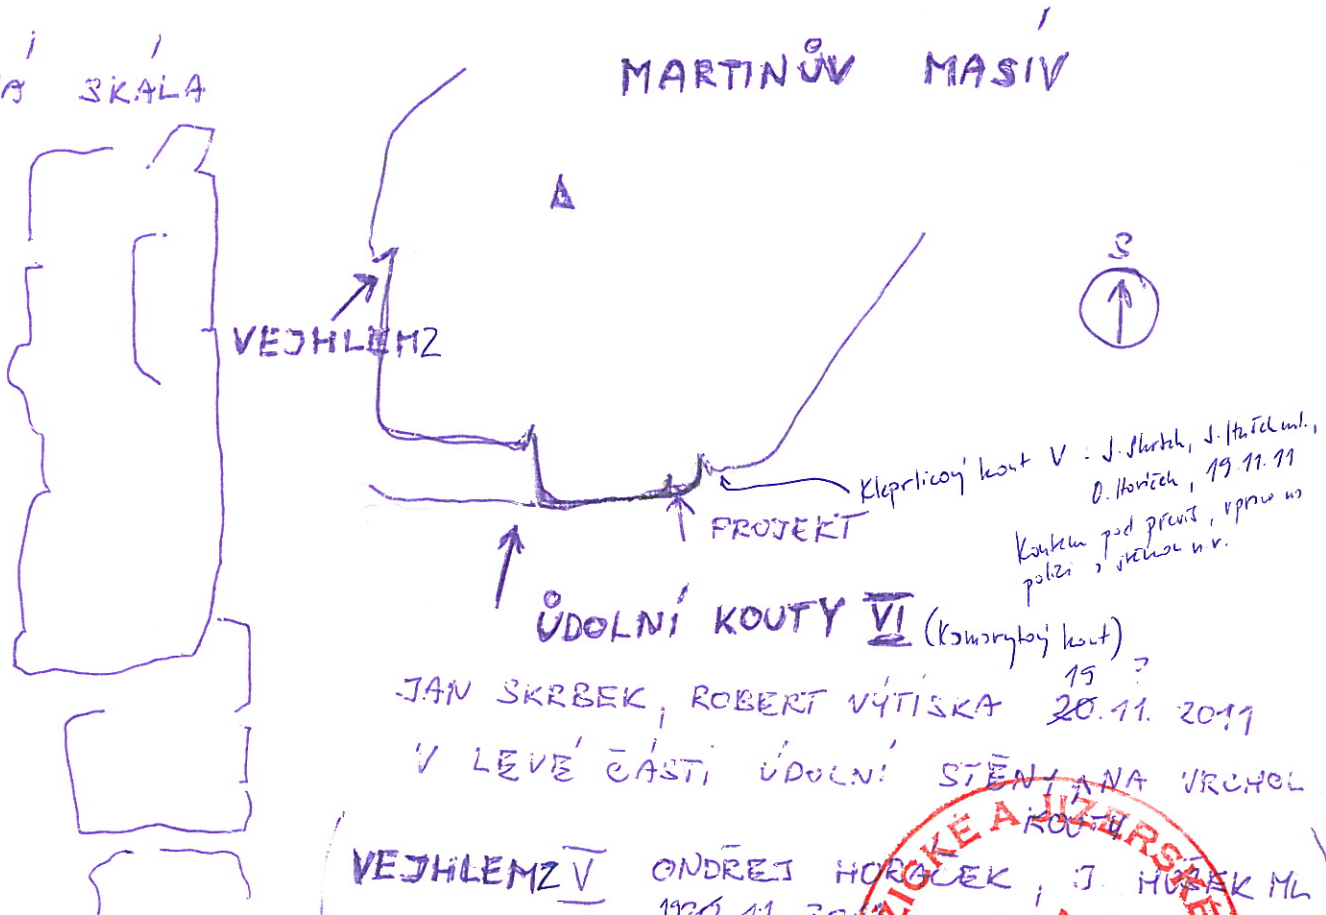 SKÁLA
MARTINŮV MASÍV
S
VEJHLEMZ
Kleprlicový kout V : J. Skrbek,
O. Horáček, 19.11.11
Koutem pod převis, vpravo na
polici a
PROJEKT
ÚDOLNÍ KOUTY VI (Kamarýtový kout)
19 ?
JAN SKRBEK, ROBERT VÝTISKA 20.11. 2011
V LEVÉ ČÁSTI ÚDOLNÍ STĚNY NA VRCHOL
KOUTY
VEJHLEMZ V ONDŘEJ HORÁČEK, J. ML
ZICKÉ A JIZERSKÉ